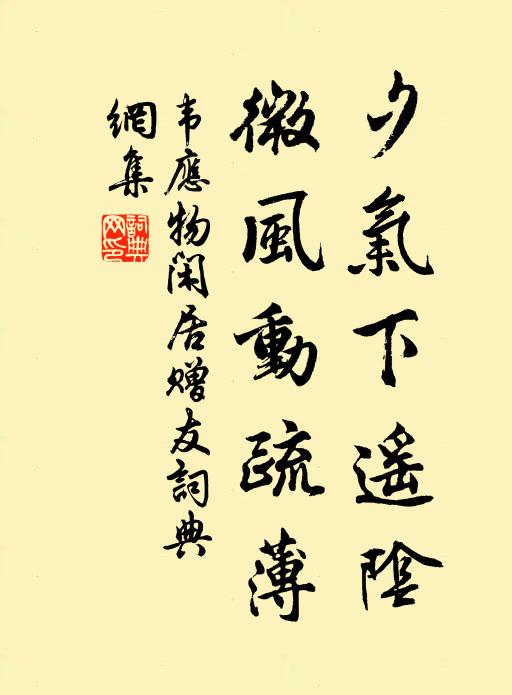 夕氣下遥陰
微風動疏薄
韦應物閑居贈友詞典
網集
詞典
网印